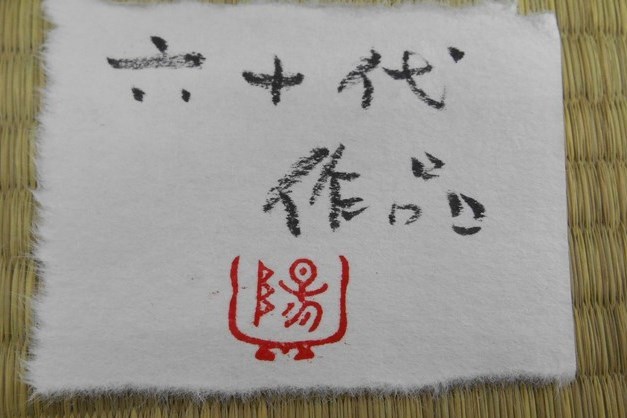 六十代
作品
陽